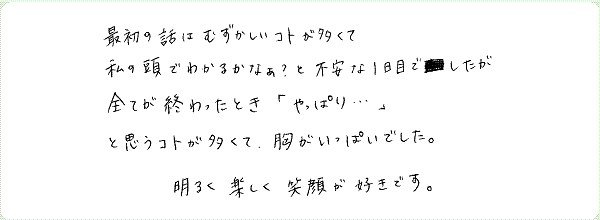 最初の話はむずかしいコトが多くて
私の頭でわかるかなぁ？と不安な1日目でしたが
全てが終わったとき「やっぱり…」
と思うコトが多くて、胸がいっぱいでした。
明るく楽しく笑顔が好きです。